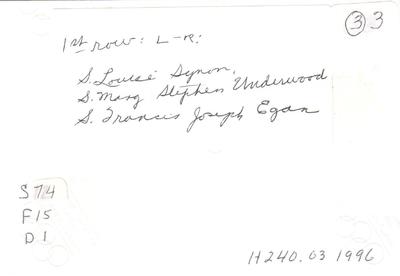 ③ 3
1st row: L-R:
S. Louise Synon,
S. Marg Stephen Underwood
S. Francis Joseph Egan
S 74
F15
D1
H240.03 1996